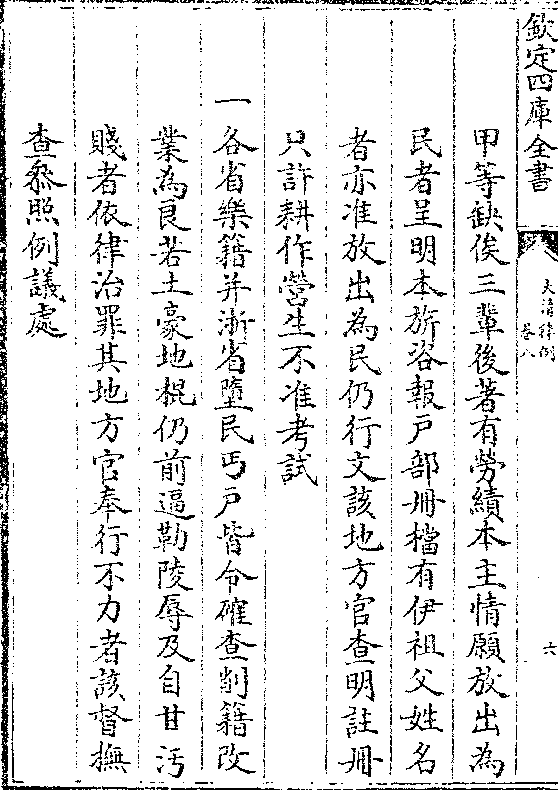 欽定四庫全書
大清律例
卷八
六
甲等缺俟三輩後著有勞績本主情願放出為
民者呈明本旂咨報戶部冊檔有伊祖父姓名
者亦准放出為民仍行文該地方官查明註冊
只許耕作營生不准考試
一各省樂籍并浙省墮民丐戶皆令確查削籍改
業為良若土豪地棍仍前逼勒陵辱及自甘汚
賤者依律治罪其地方官奉行不力者該督撫
查叅照例議處